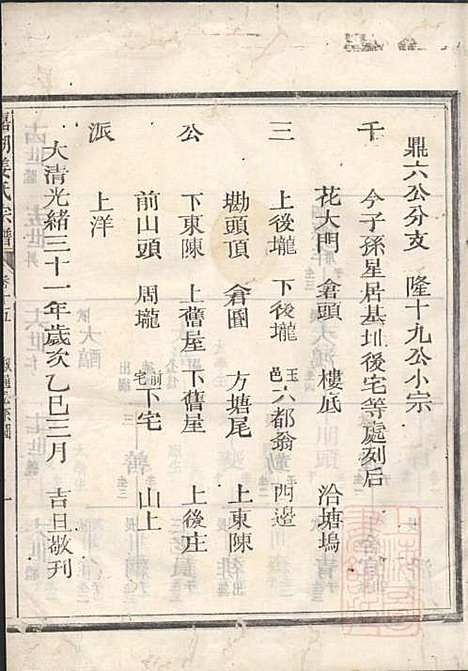 鼎六公分支　隆十九公小宗
今子孫星居基址後宅等處刻后
千　花大門　倉頭　樓底　治塘塢
三　上後壠　下後壠　玉邑六都翁童　西邊
墈頭頂　倉圈　方塘尾　上東陳
公　下東陳　上舊屋　下舊屋　上後庄
前山頭　周壠　前宅下宅　山上
派　上洋
大清光緒三十一年歲次乙巳三月　吉旦敬刊
姜氏宗譜　卷十五